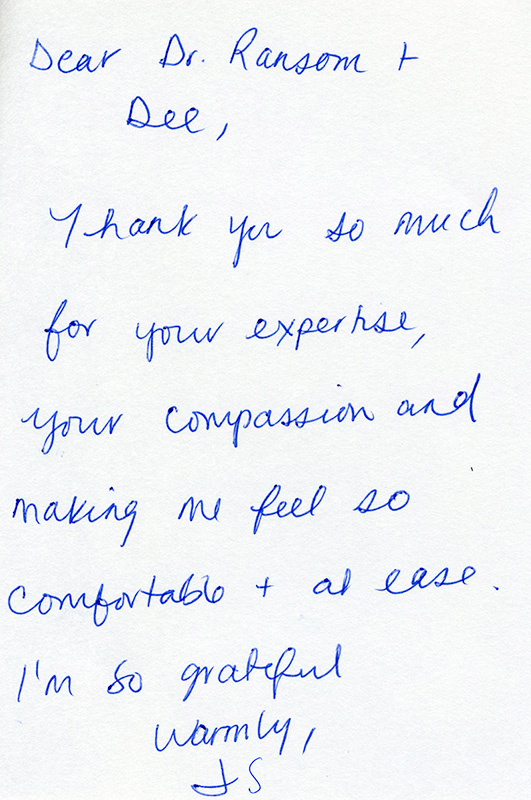 Dear Dr. Ransom +
Dee,
Thank you so much
for your expertise,
your compassion and
making me feel so
comfortable + at ease.
I'm so grateful
Warmly,
JS